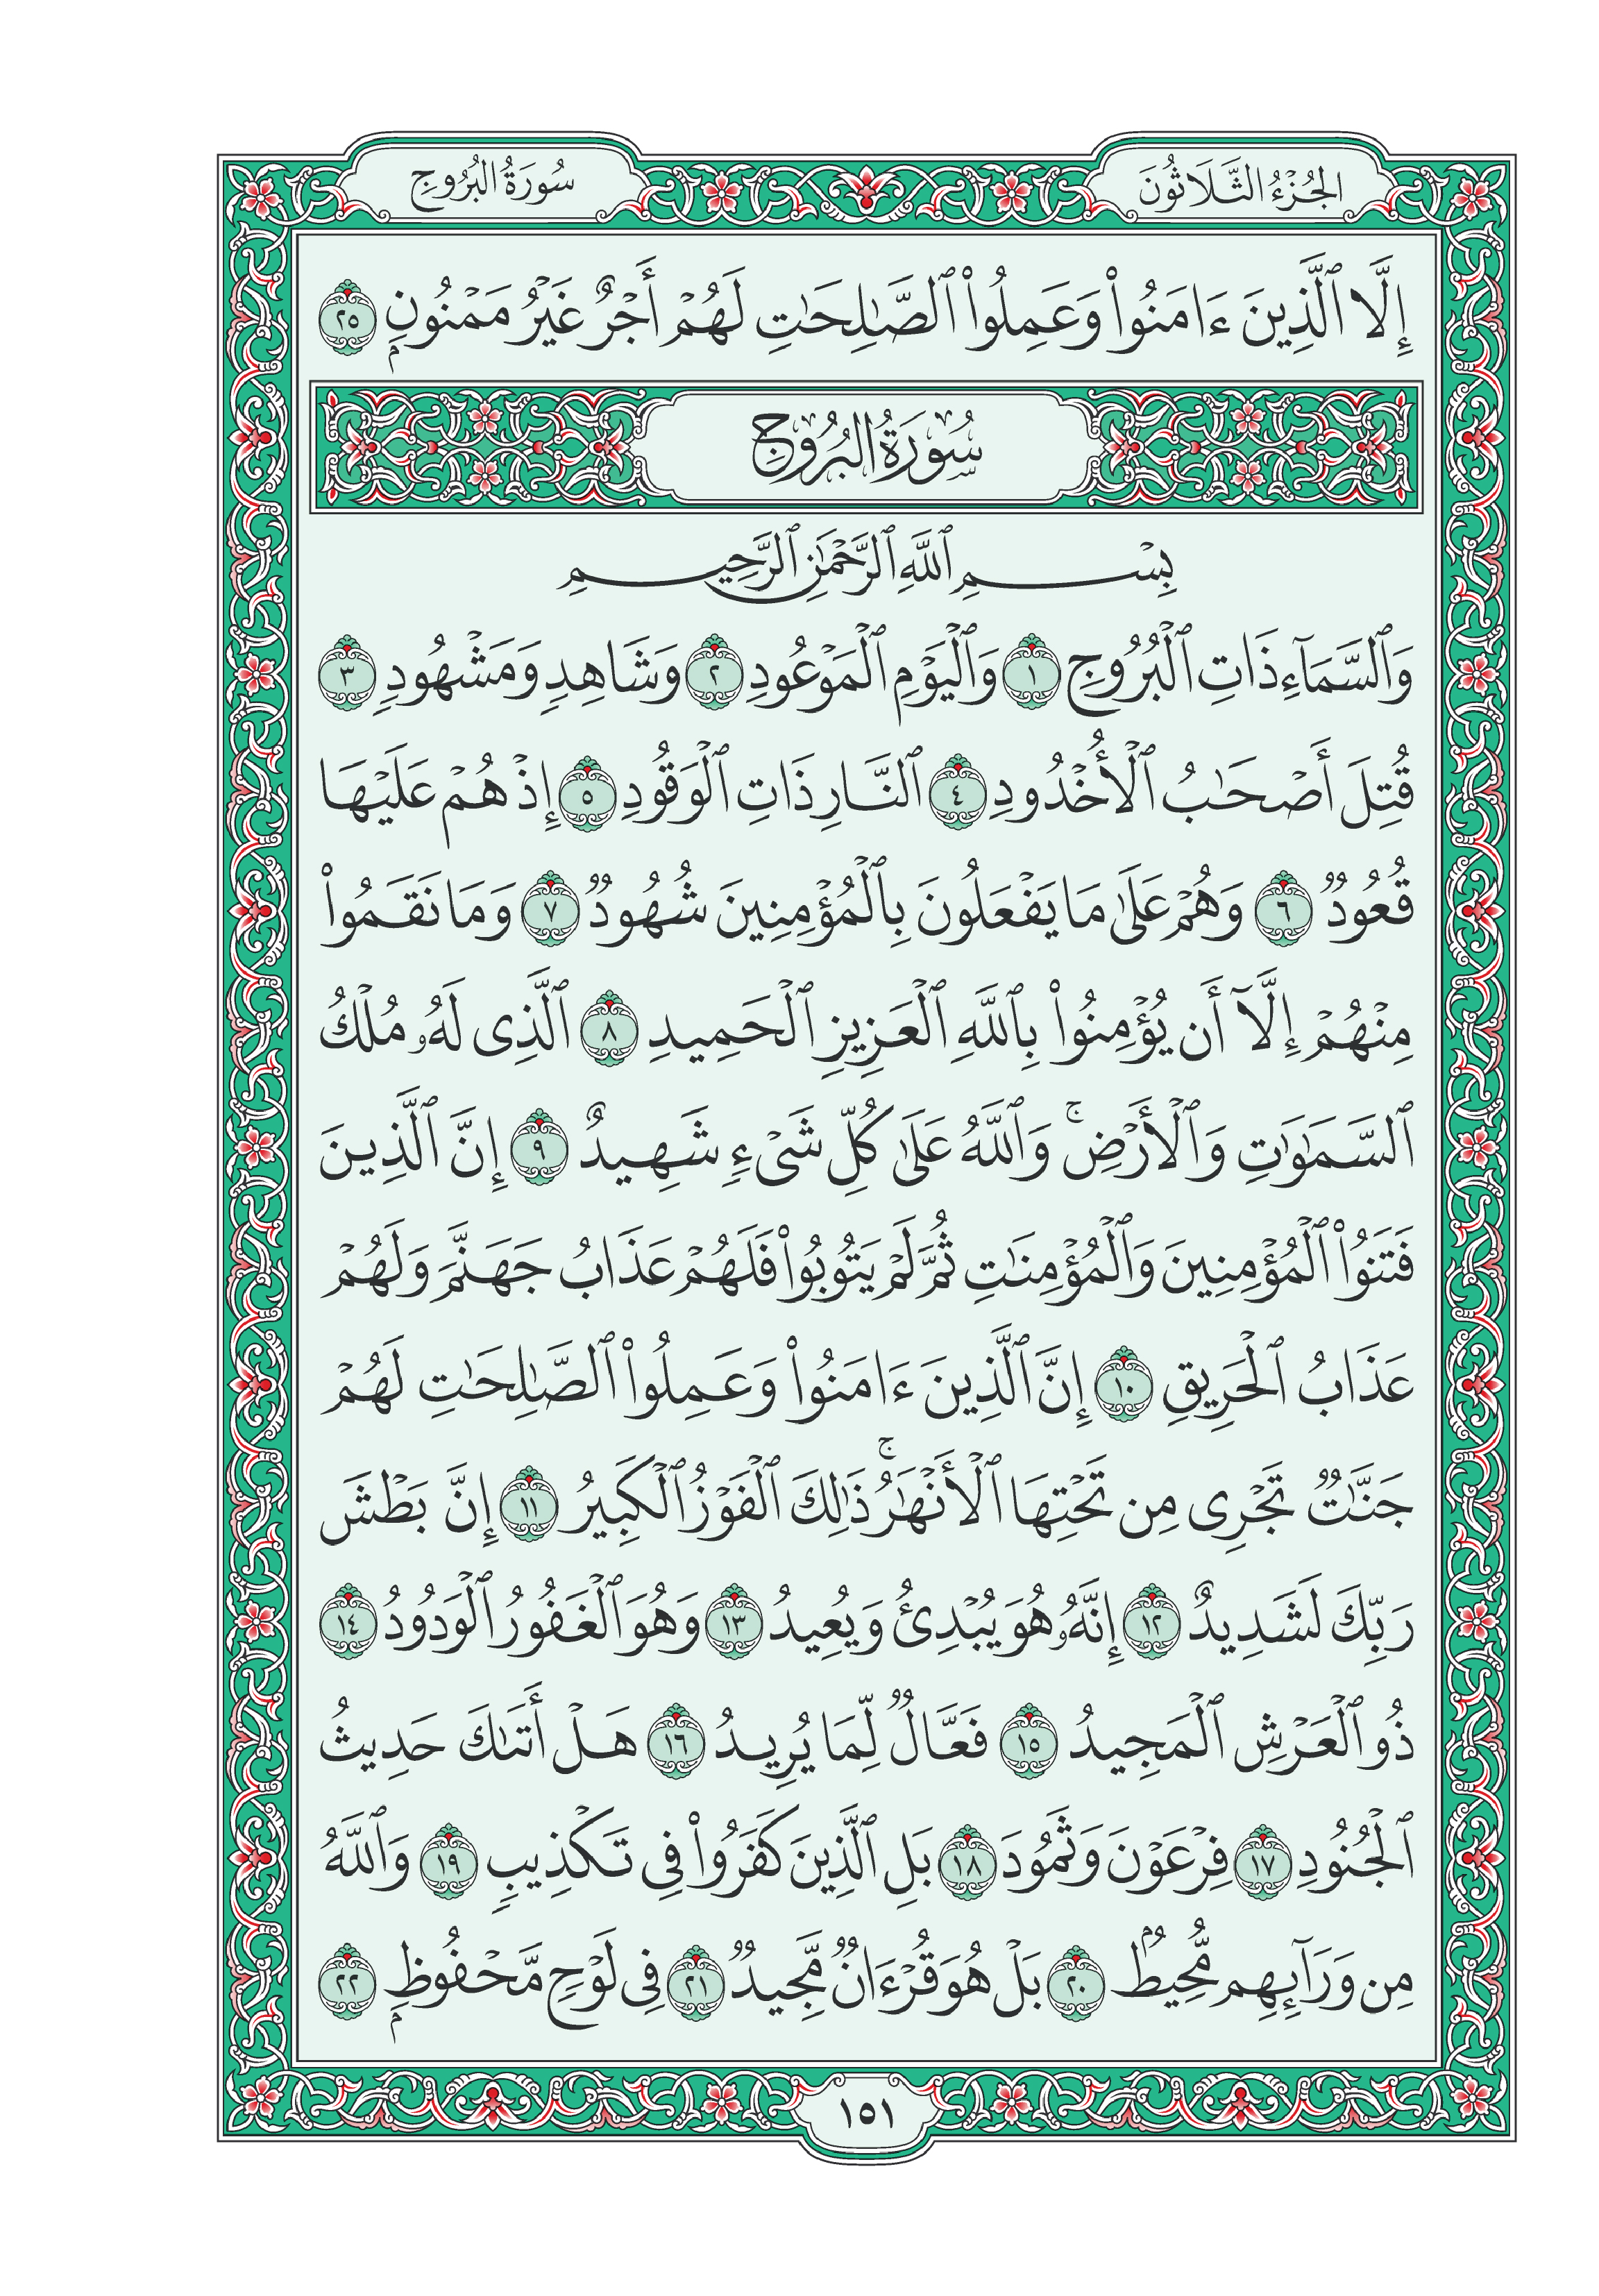 الجُزْءُ الثَّلَاثُونَ
سُورَةُ البُرُوجِ
إِلَّا ٱلَّذِينَ ءَامَنُوا۟ وَعَمِلُوا۟ ٱلصَّـٰلِحَـٰتِ لَهُمْ أَجْرٌ غَيْرُ مَمْنُونٍۭ ٢٥
سُورَةُ البُرُوجِ
بِسْمِ ٱللَّهِ ٱلرَّحْمَـٰنِ ٱلرَّحِيمِ
وَٱلسَّمَآءِ ذَاتِ ٱلْبُرُوجِ ١ وَٱلْيَوْمِ ٱلْمَوْعُودِ ٢ وَشَاهِدٍ وَمَشْهُودٍ ٣
قُتِلَ أَصْحَـٰبُ ٱلْأُخْدُودِ ٤ ٱلنَّارِ ذَاتِ ٱلْوَقُودِ ٥ إِذْ هُمْ عَلَيْهَا
قُعُودٌ ٦ وَهُمْ عَلَىٰ مَا يَفْعَلُونَ بِٱلْمُؤْمِنِينَ شُهُودٌ ٧ وَمَا نَقَمُوا۟
مِنْهُمْ إِلَّآ أَن يُؤْمِنُوا۟ بِٱللَّهِ ٱلْعَزِيزِ ٱلْحَمِيدِ ٨ ٱلَّذِى لَهُۥ مُلْكُ
ٱلسَّمَـٰوَٰتِ وَٱلْأَرْضِ ۚ وَٱللَّهُ عَلَىٰ كُلِّ شَىْءٍ شَهِيدٌ ٩ إِنَّ ٱلَّذِينَ
فَتَنُوا۟ ٱلْمُؤْمِنِينَ وَٱلْمُؤْمِنَـٰتِ ثُمَّ لَمْ يَتُوبُوا۟ فَلَهُمْ عَذَابُ جَهَنَّمَ وَلَهُمْ
عَذَابُ ٱلْحَرِيقِ ١٠ إِنَّ ٱلَّذِينَ ءَامَنُوا۟ وَعَمِلُوا۟ ٱلصَّـٰلِحَـٰتِ لَهُمْ
جَنَّـٰتٌ تَجْرِى مِن تَحْتِهَا ٱلْأَنْهَـٰرُ ۚ ذَٰلِكَ ٱلْفَوْزُ ٱلْكَبِيرُ ١١ إِنَّ بَطْشَ
رَبِّكَ لَشَدِيدٌ ١٢ إِنَّهُۥ هُوَ يُبْدِئُ وَيُعِيدُ ١٣ وَهُوَ ٱلْغَفُورُ ٱلْوَدُودُ ١٤
ذُو ٱلْعَرْشِ ٱلْمَجِيدُ ١٥ فَعَّالٌ لِّمَا يُرِيدُ ١٦ هَلْ أَتَىٰكَ حَدِيثُ
ٱلْجُنُودِ ١٧ فِرْعَوْنَ وَثَمُودَ ١٨ بَلِ ٱلَّذِينَ كَفَرُوا۟ فِى تَكْذِيبٍ ١٩ وَٱللَّهُ
مِن وَرَآئِهِم مُّحِيطٌۢ ٢٠ بَلْ هُوَ قُرْءَانٌ مَّجِيدٌ ٢١ فِى لَوْحٍ مَّحْفُوظٍۭ ٢٢
١٥١